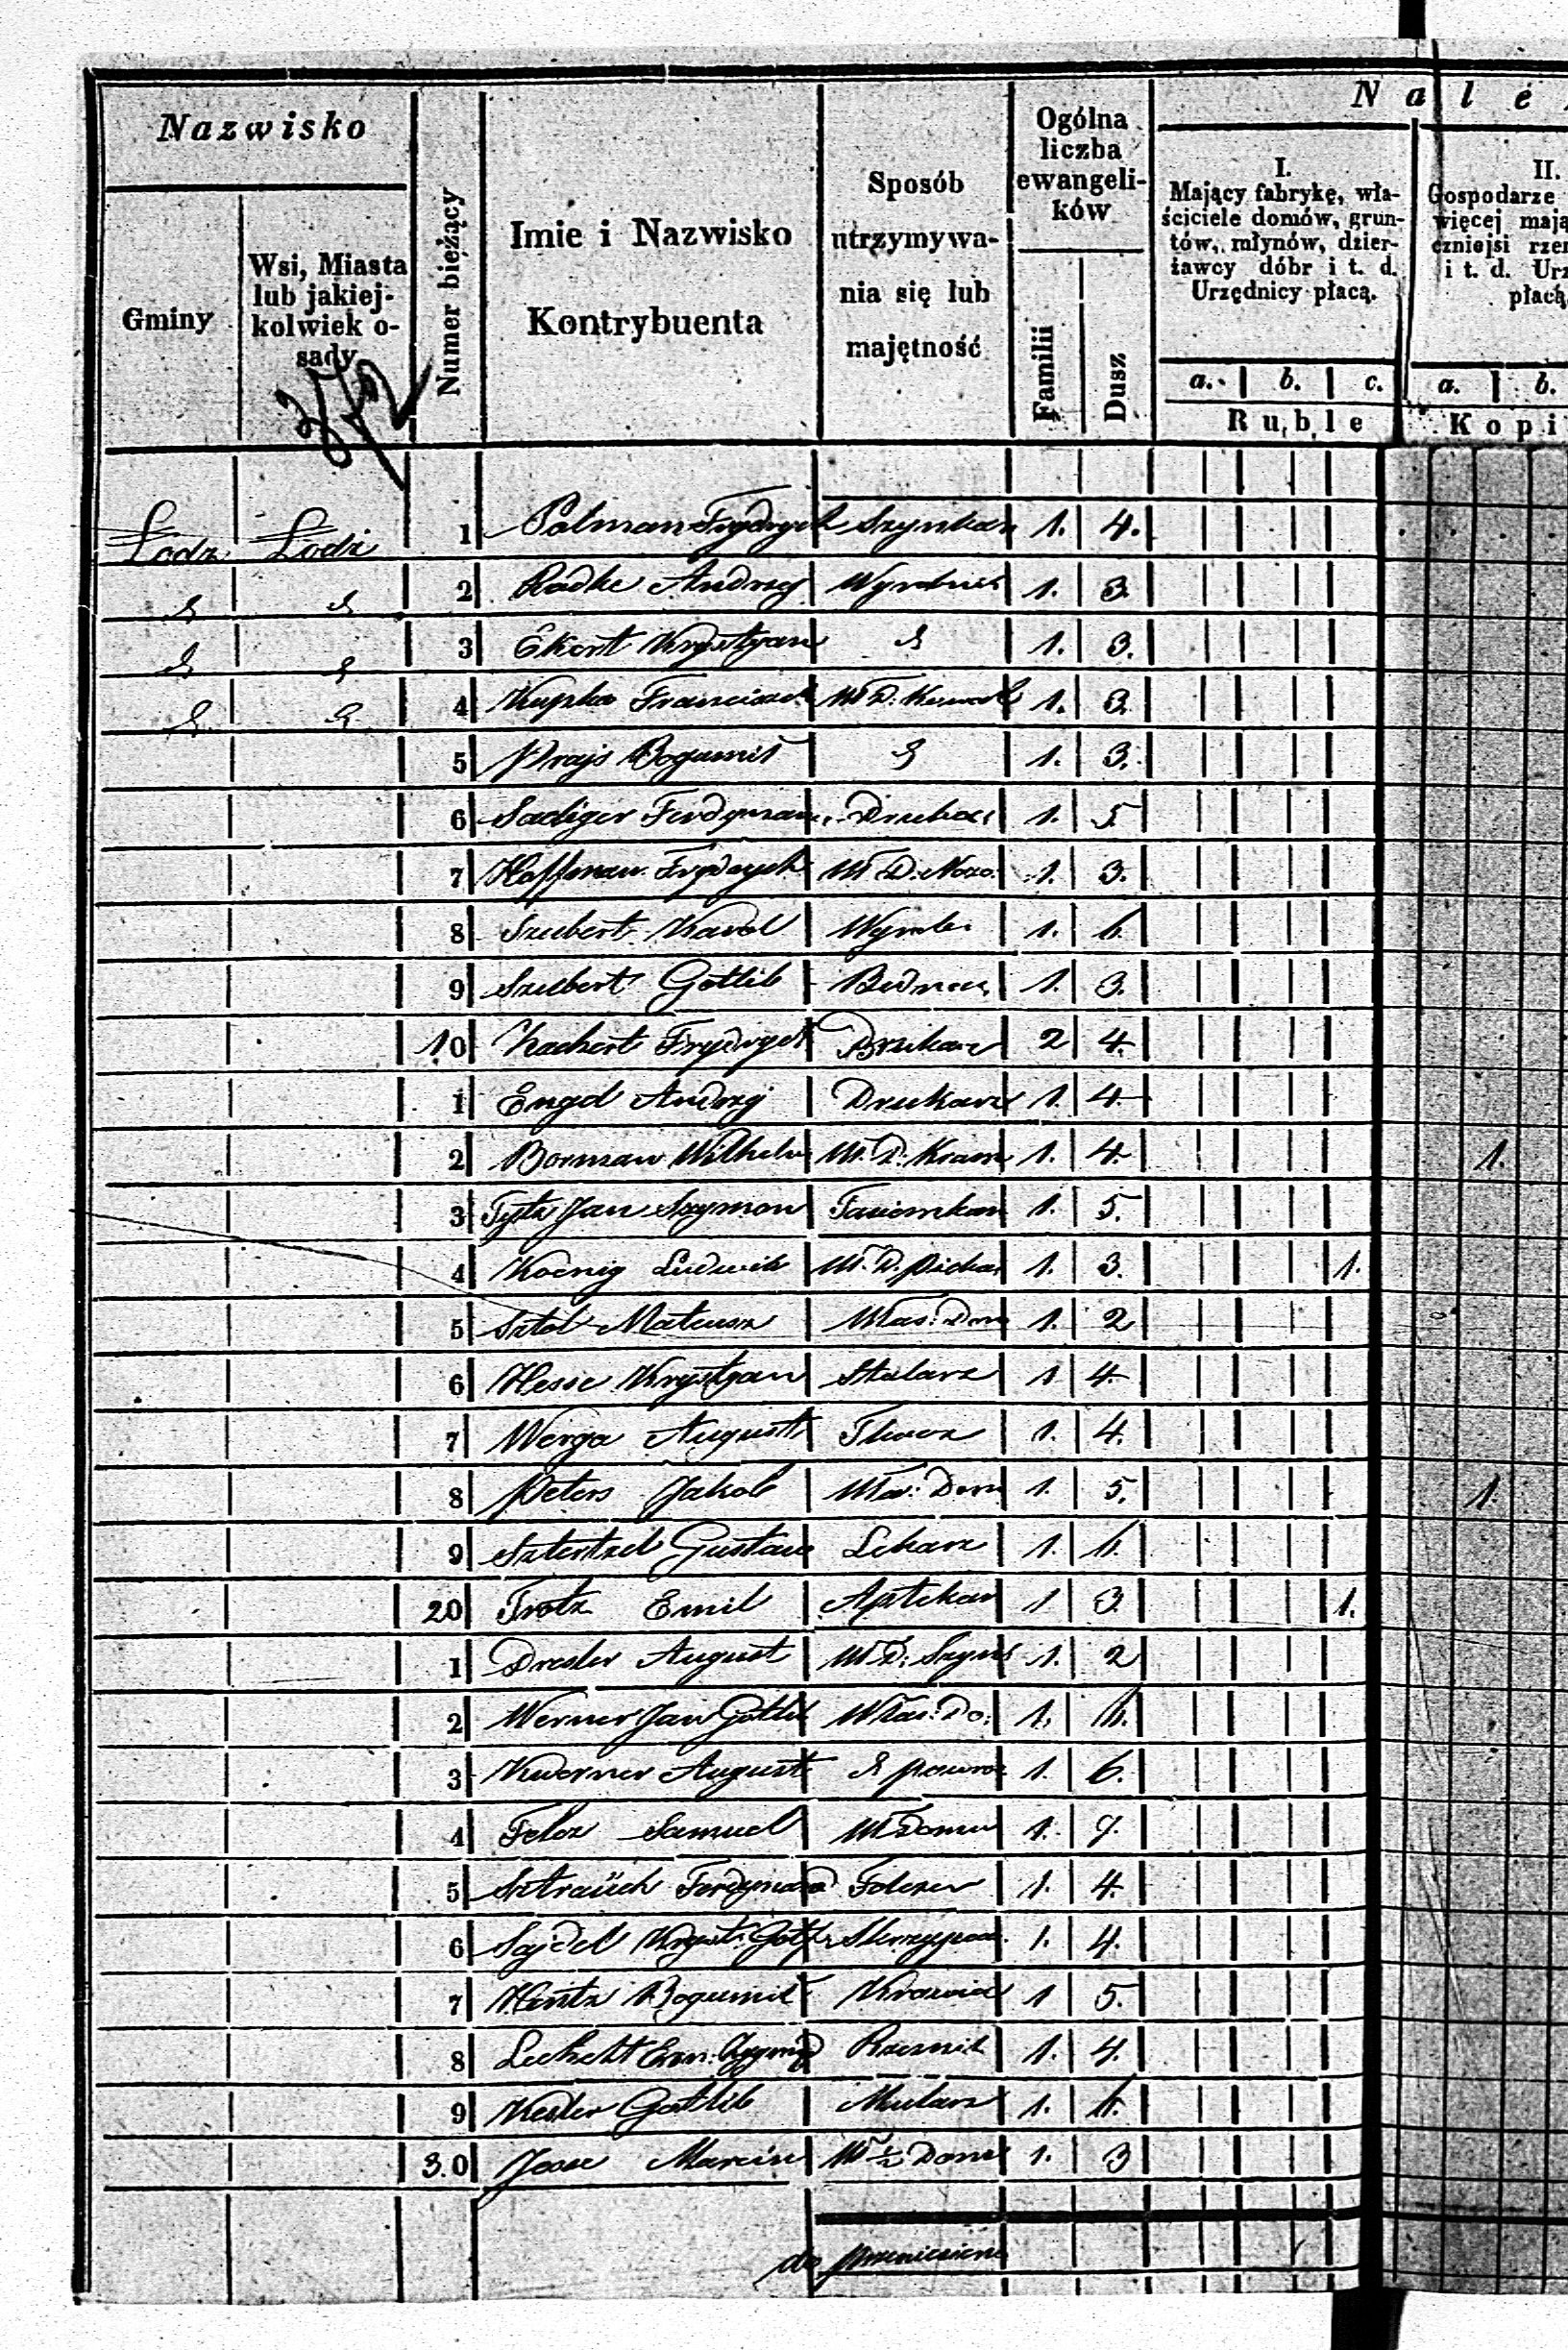 Nazwisko
Gminy
Wsi, Miasta
lub jakiej-
kolwiek o-
sady
Numer bieżący
Imie i Nazwisko
Kontrybuenta
Sposób
utrzymywa-
nia się lub
majętność
Ogólna
liczba
ewangeli-
ków
Familii
Dusz
N a l e
I.
Mający fabrykę, wła-
ściciele domów, grun-
tów, młynów, dzier-
żawcy dóbr i t. d.
Urzędnicy płacą.
a. b. c.
Ruble
II.
Gospodarze
więcej mają
czniejsi rze
i t. d. Urz
płacą
a. b.
Kopi
Łódź Łodź 1 Polman Frydrych Szynkarz 1. 4.
2 Radke Andrzej Wyrobnik 1. 3.
3 Ekert Krystyan 1. 3.
4 Kupka Franciszek Wł D. 1. 3.
5 Prajs Bogumił 1. 3.
6 Sadiger Ferdynan Drukar 1. 5.
7 Hoffman Frydrych Wł D. 1. 3.
8 Szubert Karol Wyrob 1. 6.
9 Szubert Gotlib Bednarz 1. 3.
10 Kachert Frydrych Drukarz 2 4.
1 Engel Andrzej Drukarz 1. 4
2 Borman Wilhelm Wł. D. Kram 1. 4. 1.
3 Tytz Jan Szymon 1. 5.
4 Koenig Ludwik Wł. D. piekar 1. 3. 1.
5 Sztol Mateusz Włas. Dom 1. 2
6 Hesse Krystyan Stolarz 1 4.
7 Werga August Tkacz 1. 4.
8 Peters Jakob Wła. Dom 1. 5. 1.
9 Gustaw Lekarz 1. 6.
20 Trotz Emil Aptekar 1 3. 1.
1 Dresler August Wł D. Szyn 1. 2
2 Werner Jan Gotlib Włas. Do. 1. 6.
3 Kwerner August powro 1. 6.
4 Felsz Samuel Wł Domu 1. 7.
5 Sztraüch Ferdynand Felczer 1. 4.
6 Sejdel Kryst. Gotf. 1. 4.
7 Hintz Bogumił Krawiec 1 5.
8 Rzeznik 1. 4.
9 Kesler Gotlib Mularz 1. 6.
30 Marcin Wł ½ Domu 1. 3
do przeniesienia